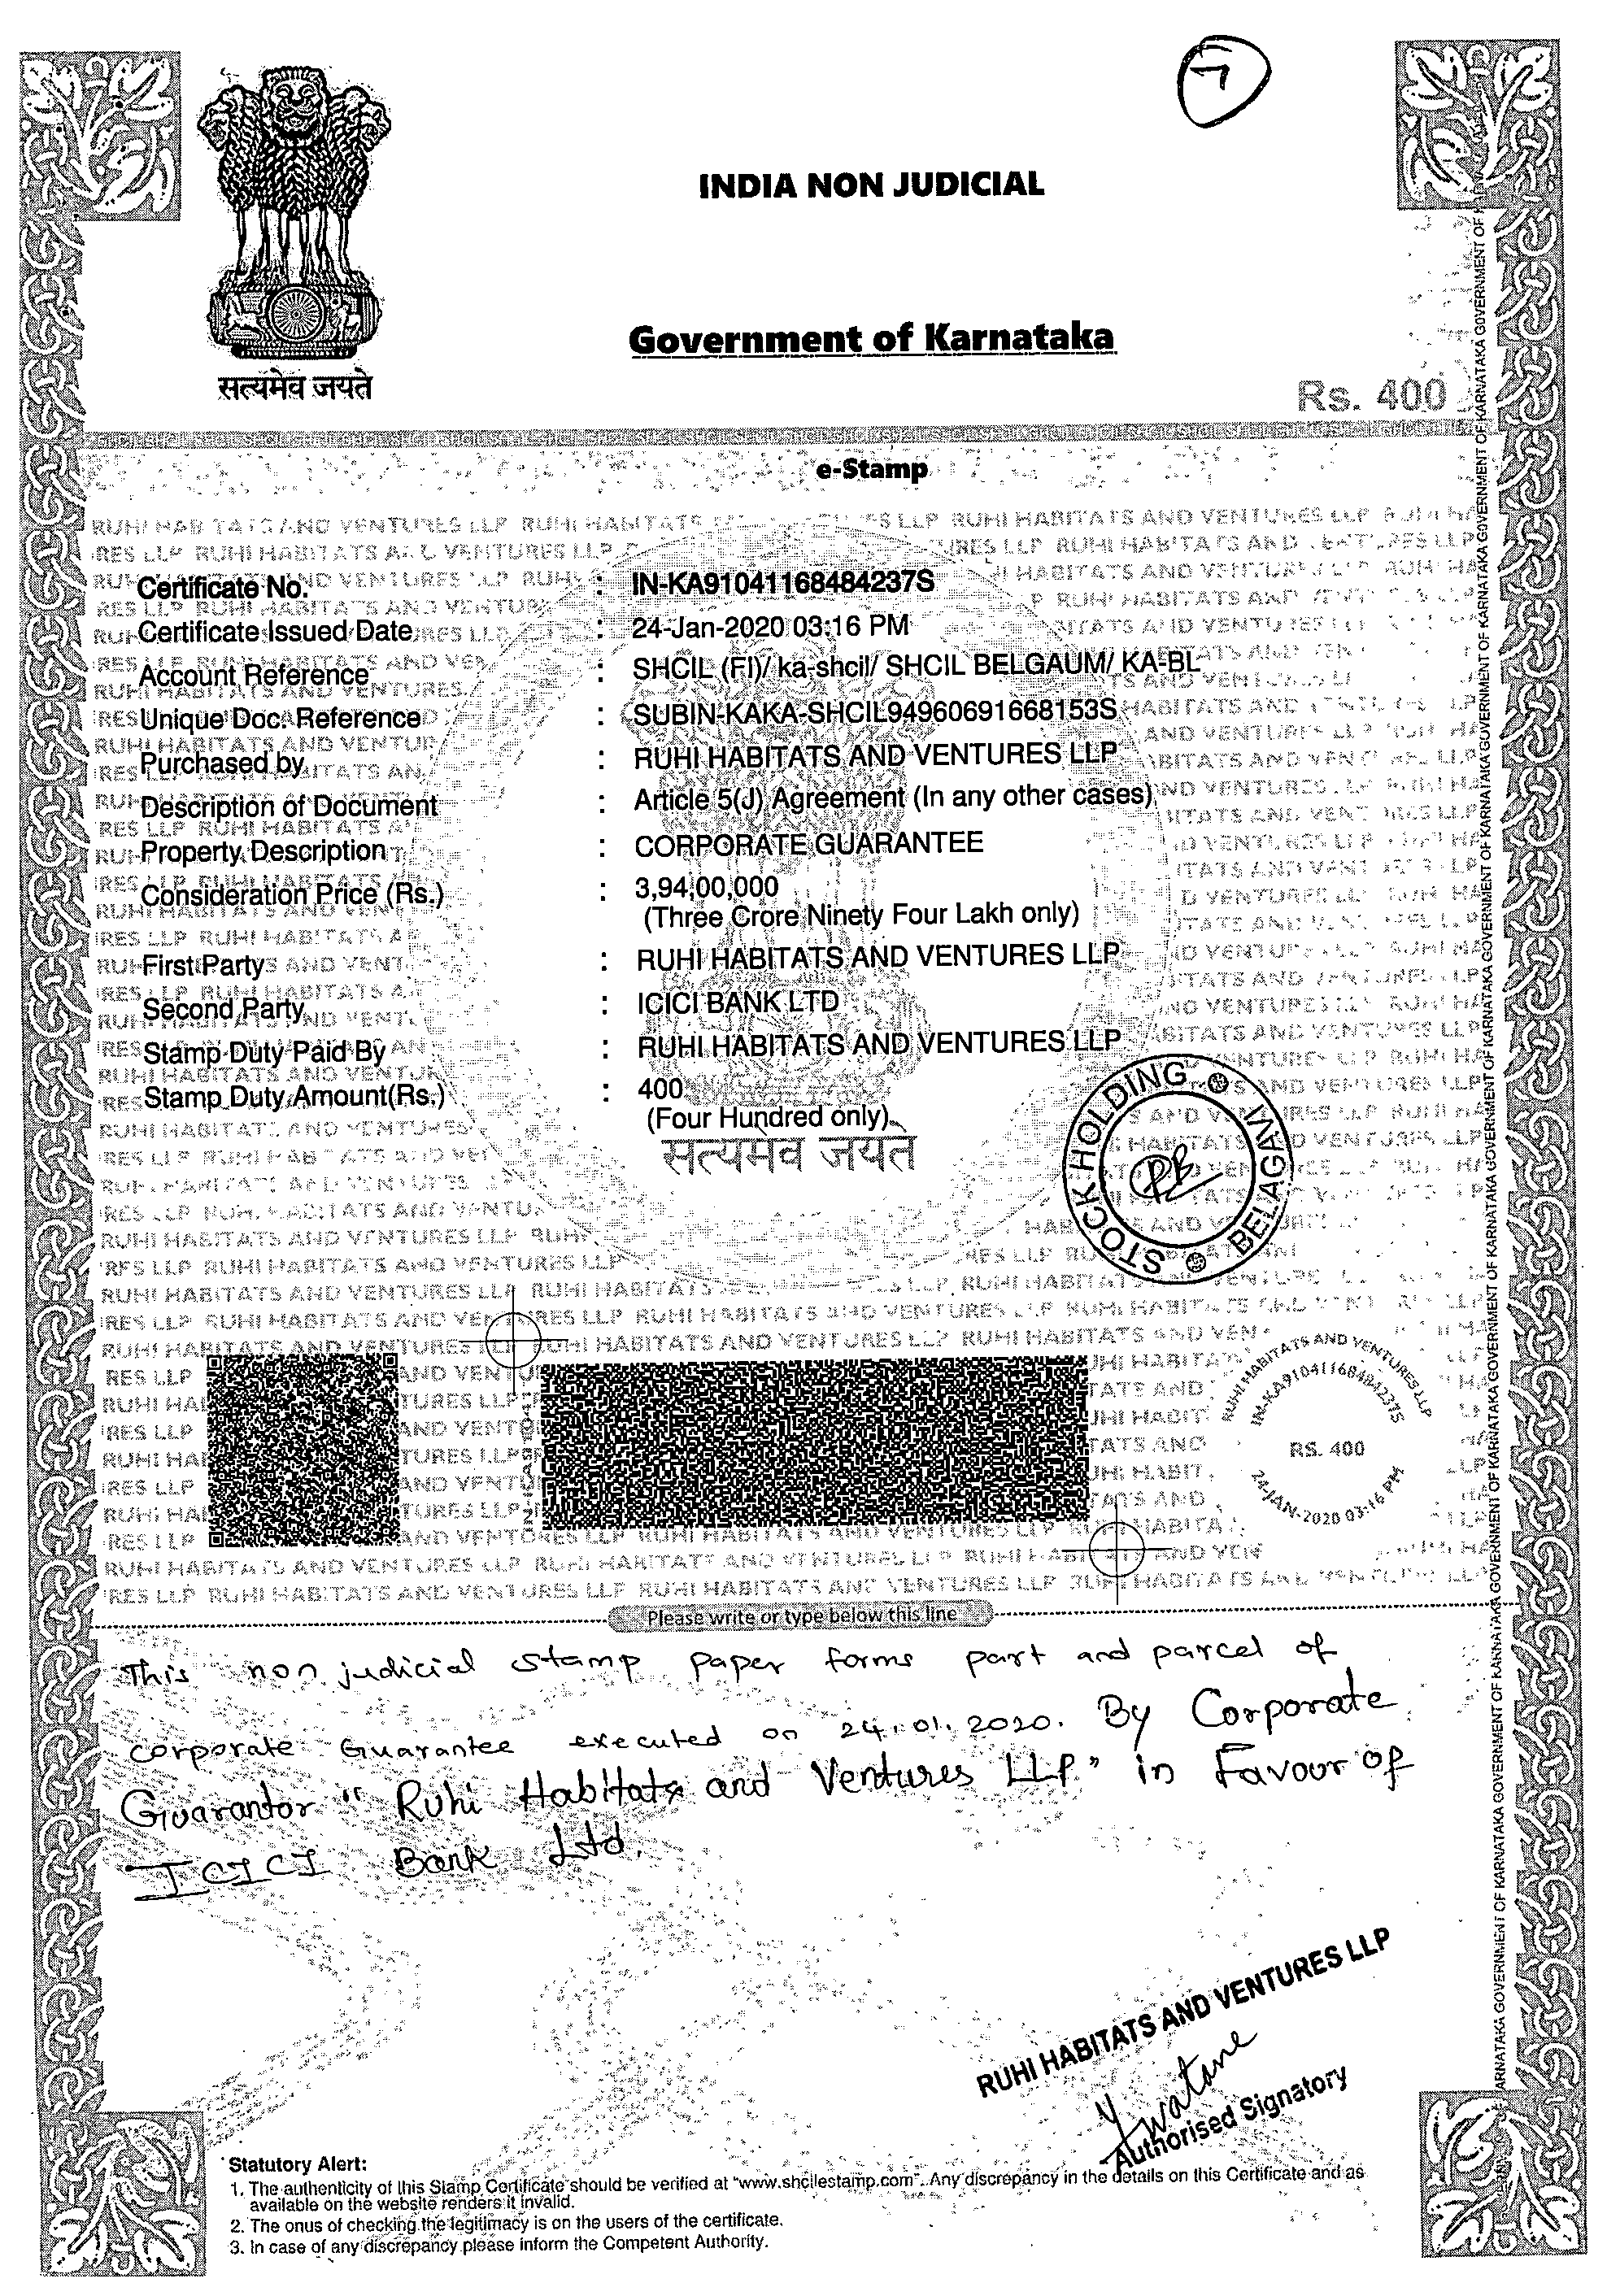 7
INDIA NON JUDICIAL
Government of Karnataka
सत्यमेव जयते
Rs. 400
e-Stamp
Certificate No. : IN-KA91041168484237S
Certificate Issued Date : 24-Jan-2020 03:16 PM
Account Reference : SHCIL (FI)/ ka-shcil/ SHCIL BELGAUM/ KA-BL
Unique Doc. Reference : SUBIN-KAKA-SHCIL94960691668153S
Purchased by : RUHI HABITATS AND VENTURES LLP
Description of Document : Article 5(J) Agreement (In any other cases)
Property Description : CORPORATE GUARANTEE
Consideration Price (Rs.) : 3,94,00,000
(Three Crore Ninety Four Lakh only)
First Party : RUHI HABITATS AND VENTURES LLP
Second Party : ICICI BANK LTD
Stamp Duty Paid By : RUHI HABITATS AND VENTURES LLP
Stamp Duty Amount(Rs.) : 400
(Four Hundred only)
सत्यमेव जयते
STOCK HOLDING BELAGAVI
RUHI HABITATS AND VENTURES LLP
IN-KA91041168484237S
RS. 400
24-JAN-2020 03:16 PM
Please write or type below this line
This non judicial stamp paper forms part and parcel of
corporate Guarantee executed on 24.01.2020. By Corporate
Guarantor "Ruhi Habitats and Ventures LLP." in Favour of
ICICI Bank Ltd.
RUHI HABITATS AND VENTURES LLP
Authorised Signatory
Statutory Alert:
1. The authenticity of this Stamp Certificate should be verified at "www.shcilestamp.com". Any discrepancy in the details on this Certificate and as
available on the website renders it invalid.
2. The onus of checking the legitimacy is on the users of the certificate.
3. In case of any discrepancy please inform the Competent Authority.